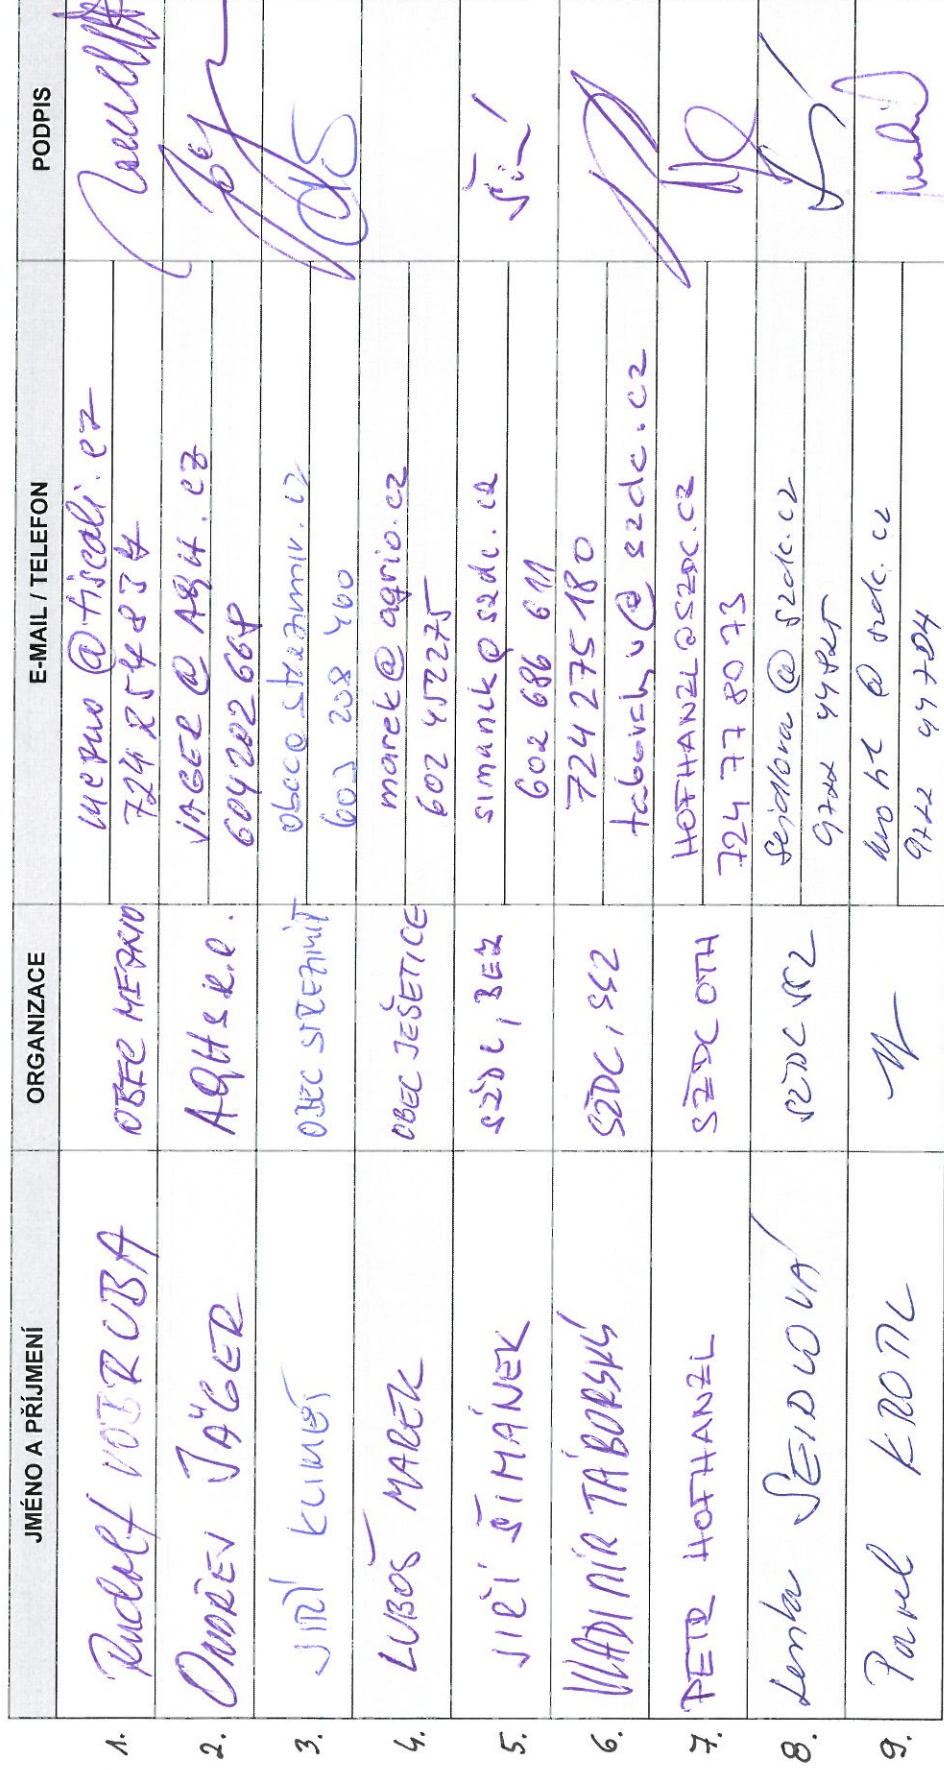 JMÉNO A PŘÍJMENÍ ORGANIZACE E-MAIL / TELEFON PODPIS
1. Rudolf VOBRUBA OBEC MEZNO mezno@tiscali.cz
724 254 834
2. ONDŘEJ JÄGER AQH s.r.o. JAGER@AQH.CZ
604202668
3. JIŘÍ KLIMEŠ OBEC STŘEZIMÍŘ
603 208 460
4. LUBOŠ MAREK OBEC JEŠETICE marek@agrio.cz
602 452275
5. JIŘÍ ŠIMÁNEK SŽDC, simanek@szdc.cz
602 686 611
6. VLADIMÍR TÁBORSKÝ SŽDC, SSZ 724 275 180
taborsky@szdc.cz
7. PETR HOFHANZL SŽDC OTH HOFHANZL@SZDC.CZ
724 77 80 73
8. Lenka ŠEIDLOVÁ SŽDC SSZ Seidlova@szdc.cz
9722 44825
9. Pavel KROTIL @szdc.cz
9722